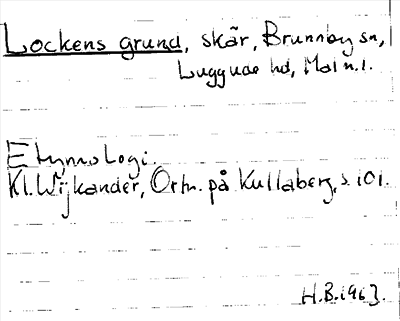 Lockens grund, skär, Brunnby sn,
Luggude hd, Malm.l.
Etymologi.
Kl. Wijkander, Ortn. på Kullaberg, s. 101.
H.B. 1963.